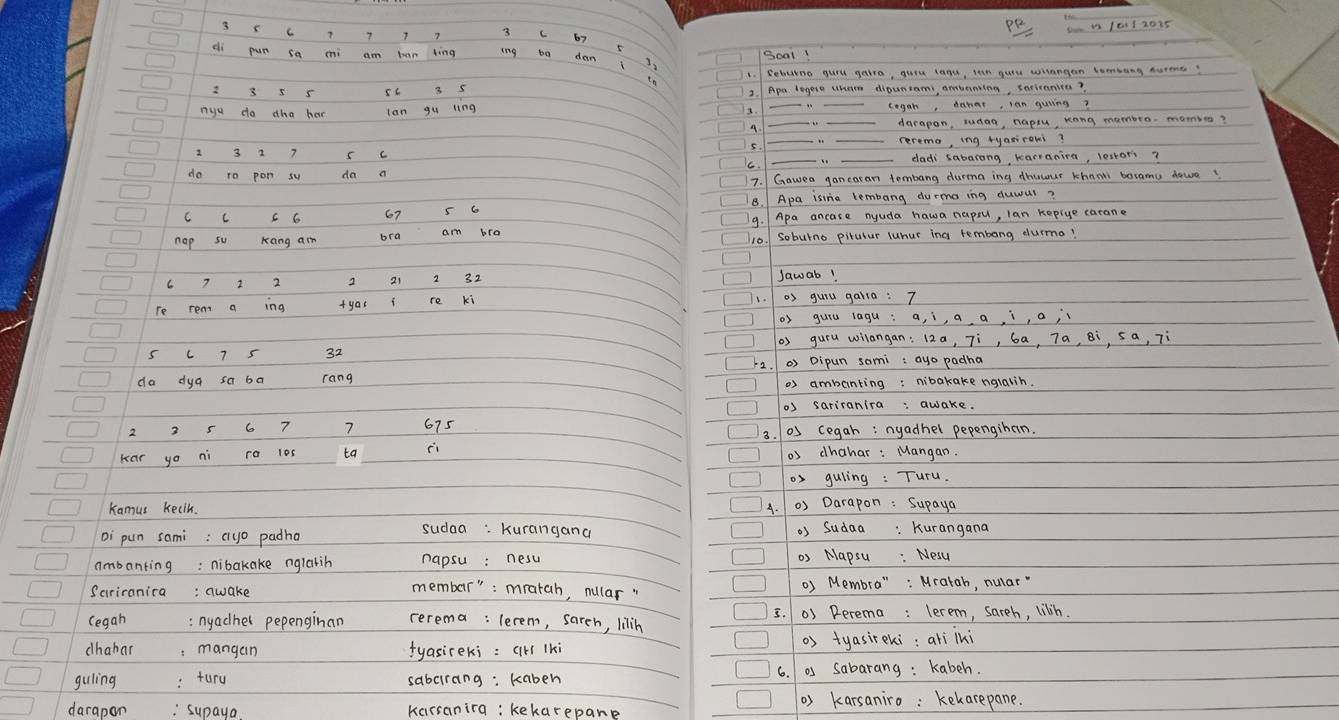 3 5 6 7 7 7 7 3 6 67 5 32
di pun sa mi am ban ting ing ba dan i ra
2 3 5 5 56 3 5
nya da dha har lan gu ling
2 3 2 7 5 6
da ra pon su da a
6 6 6 6 67 5 6
nap su kang am bra am bra
6 7 2 2 2 21 2 32
re rem a ing tyas i re ki
5 6 7 5 32
da dya sa ba rang
2 3 5 6 7 7 675
kar ya ni ra los ta ri
Kamus kecik.
Di pun sami : ayo padha
ambanting : nibakake nglatih
Sariranira : awake
cegah : nyadhet pepenginan
dhahar : mangan
guling : turu
darapon : supaya.
sudaa : kurangana
napsu : nesu
membar" : mratah, nular "
rerema : lerem, sareh, lilih
tyasireki : ati iki
sabarang : kabeh
karsanira : kekarepane
PR
/ 2025
Soal !
1. Sebutno guru gatra, guru lagu, lan guru wilangan tembang durma !
2. Apa tegese dipunsami, ambanting, sariranira ?
3. — " — cegah, dahar, lan guling ?
4. — " — darapon, sudaa, napsu, kang mambra-mambra ?
5. — " — rerema, ing tyasireki ?
6. — " — dadi sabarang, karsanira, lestari ?
7. Gawea gancaran tembang durma ing dhuwur khanti basamu dewe !
8. Apa isine tembang durma ing duwur ?
9. Apa ancase nyuda hawa napsu, lan kepiye carane
10. Sebutno pitutur luhur ing tembang durma !
Jawab !
1. o> guru gatra : 7
o> guru lagu : a, i, a, a, i, a, i
o> guru wilangan : 12a, 7i, 6a, 7a, 8i, 5a, 7i
2. o> Dipun sami : ayo padha
o> ambanting : nibakake nglatih.
o> sariranira : awake.
3. o> cegah : nyadhet pepengihan.
o> dhahar : Mangan.
o> guling : Turu.
4. o> Darapon : Supaya
o> Sudaa : Kurangana
o> Napsu : Nesu
o> Membra" : Mratah, nular "
5. o> Rerema : lerem, sareh, lilih.
o> tyasireki : ati iki
6. o> sabarang : kabeh.
o> karsaniro : kekarepane.